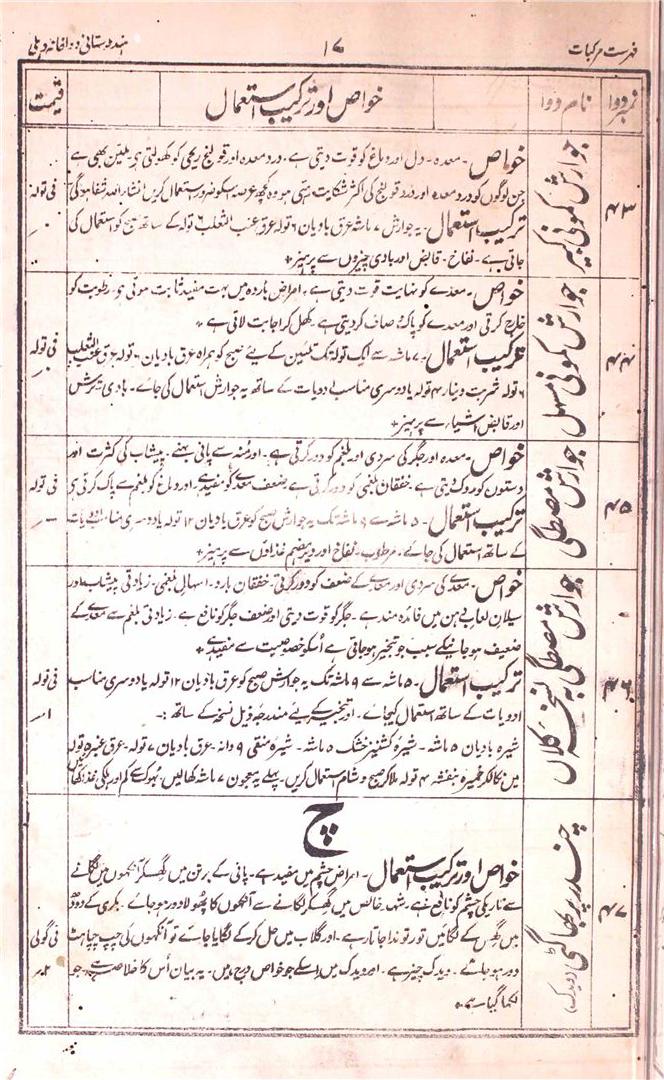 فہرست مرکبات ۱۷ ہندوستانی دواخانہ دہلی
نمبر دوا نام دوا خواص اور ترکیب استعمال قیمت
۴۳
جوارش کمونی کبیر
خواص۔ معدہ۔ دل اور دماغ کو قوت دیتی ہے۔ درد معدہ اور قولنج ریحی کو کھولتی ہی۔ ملین بھی ہے
جن لوگوں کو درد معدہ اور درد قولنج کی اکثر شکایت رہتی ہو وہ کچھ عرصہ اسکو ضرور استعمال کریں انشاء اللہ شفا ہوگی
ترکیب استعمال۔ یہ جوارش ۷ ماشہ عرق بادیان ۶ تولہ عرق عنب الثعلب ۶ تولہ کے ساتھ صبح کو استعمال کی
جاتی ہے۔ نفاخ۔ قابض اور بادی چیزوں سے پرہیز +
فی تولہ
۴۴
جوارش کمونی مسہل
خواص۔ معدے کو نہایت قوت دیتی ہے۔ امراض باردہ میں بہت مفید ثابت ہوئی ہی۔ رطوبت کو
خارج کرتی اور معدے کو پاک و صاف کر دیتی ہے۔ کھل کر اجابت لاتی ہے۔
ترکیب استعمال۔ ۷ ماشہ سے ایک تولہ تک تلئین کے لیے صبح کو ہمراہ عرق بادیان ۶ تولہ عرق عنب الثعلب
۶ تولہ شربت دینار ۴ تولہ یا دوسری مناسب ادویات کے ساتھ یہ جوارش استعمال کی جائے۔ بادی ترش
اور قابض اشیاء سے پرہیز +
فی تولہ
۴۵
جوارش مصطگی
خواص۔ معدہ اور جگر کی سردی اور بلغم کو دور کرتی ہے۔ اور منہ سے پانی بہنے۔ پیشاب کی کثرت اور
دستوں کو روک دیتی ہے۔ خفقان بلغمی کو دور کرتی ہے ضعف معدہ کو مفید ہے۔ اور دماغ کو بلغم سے پاک کرتی ہی
ترکیب استعمال۔ ۵ ماشہ سے ۹ ماشہ تک یہ جوارش صبح کو عرق بادیان ۱۲ تولہ یا دوسری مناسب ادویات
کے ساتھ استعمال کی جائے۔ مرطوب۔ نفاخ اور دیر ہضم غذاؤں سے پرہیز +
فی تولہ
۴۶
جوارش مصطگی بہ نسخہ کلاں
خواص۔ معدے کی سردی اور معدے کے ضعف کو دور کرتی۔ خفقان بارد۔ اسہال بلغمی۔ زیادتی پیشاب اور
سیلان لعاب دہن میں فائدہ مند ہے۔ جگر کو قوت دیتی اور ضعف جگر کو نافع ہے۔ زیادتی بلغم سے معدے کے
ضعیف ہو جانیکے سبب جو تبخیر ہو جاتی ہے اسکو خصوصیت سے مفید ہے +
ترکیب استعمال۔ ۵ ماشہ سے ۹ ماشہ تک یہ جوارش صبح کو عرق بادیان ۱۲ تولہ یا دوسری مناسب
ادویات کے ساتھ استعمال کیجائے۔ اور تبخیر کے لیے مندرجہ ذیل نسخہ کے ساتھ :-
شیرہ بادیان ۵ ماشہ۔ شیرہ کشنیز خشک ۵ ماشہ۔ شیرہ منقی ۹ دانہ۔ عرق بادیان ۷ تولہ۔ عرق تولہ
میں نکالکر خمیرہ بنفشہ ۴ تولہ ملا کر صبح و شام استعمال کریں۔ پہلے یہ معجون ۷ ماشہ کھالیں۔ بھوک سے کم اور ہلکی غذا کھائیں
فی تولہ
۱ر
چ
۴۷
چندر پربھا گٹی (ویدک)
خواص اور ترکیب استعمال۔ امراض چشم میں مفید ہے۔ پانی کے برتن میں گھسکر آنکھوں میں لگانے
سے تاریکی چشم کو نافع ہے۔ شہد خالص میں گھسکر لگانے سے آنکھوں کا پھولا دور ہو جائے۔ بکری کے دودھ
میں گھس کے لگائیں تو رتوندا جاتا رہے۔ اور گلاب میں حل کر کے لگایا جائے تو آنکھوں کی چیپ چپاہٹ
دور ہو جائے۔ ویدک چیز ہے۔ اور ویدک میں اسکے جو خواص درج ہیں۔ یہ بیان اس کا خلاصہ ہے۔ جو
لکھا گیا ہے +
فی گولی
۲ر